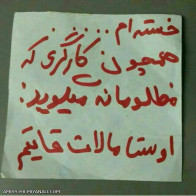 خسته‌ام.....
همچون کارگری که
مظلومانه میگوید:
اوستا ملات قایتیم